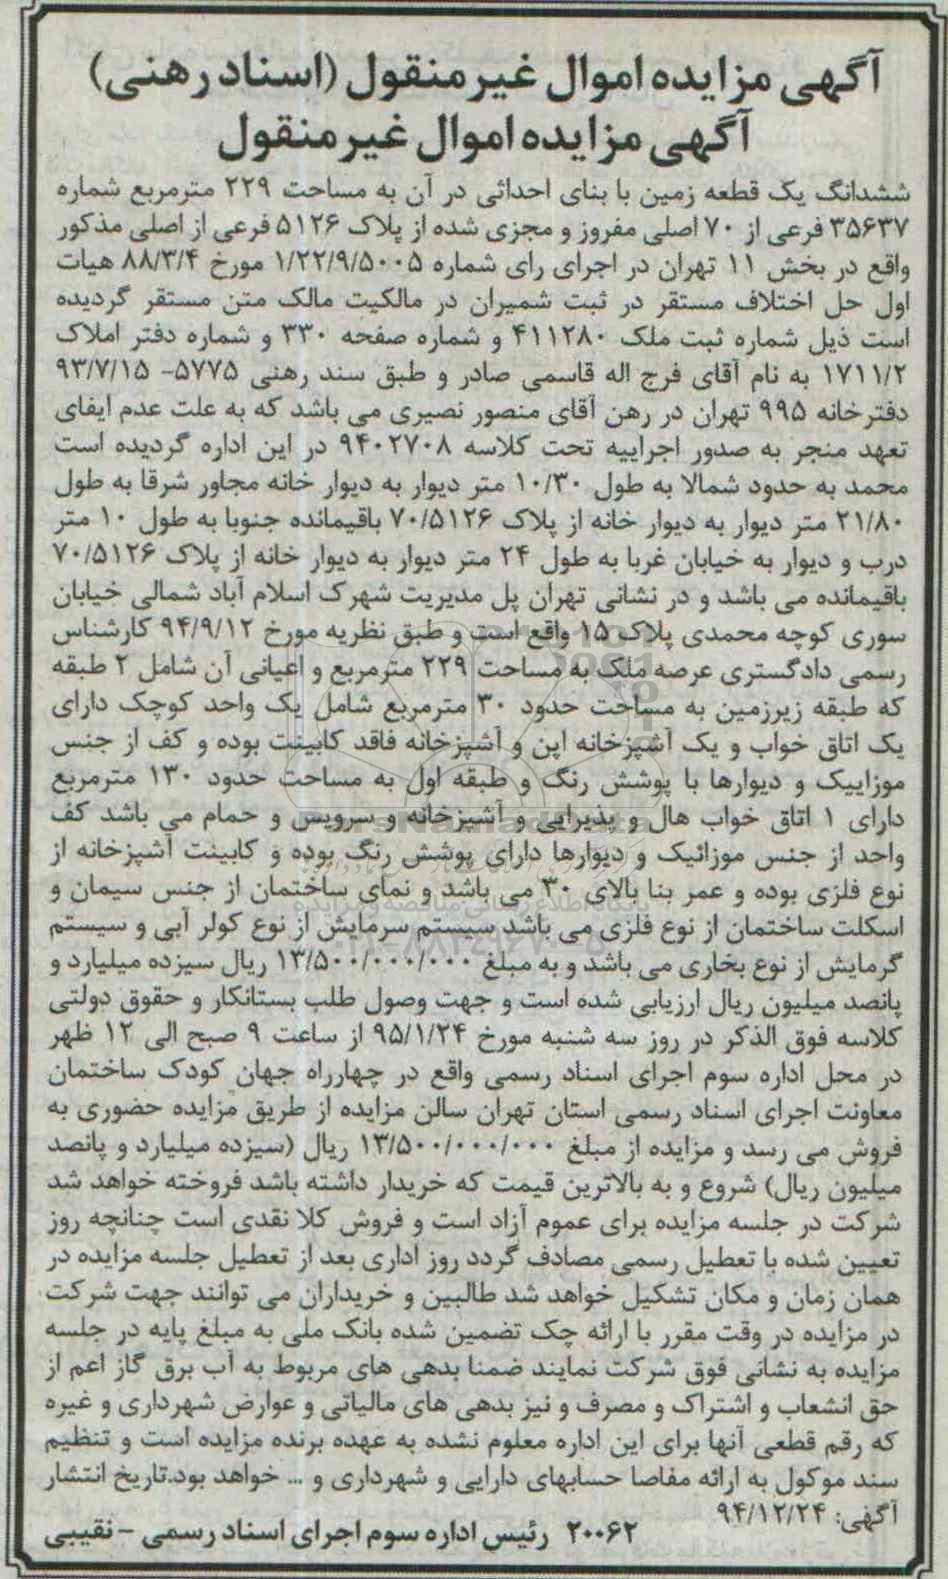 آگهی مزایده اموال غیرمنقول (اسناد رهنی)
آگهی مزایده اموال غیرمنقول
ششدانگ یک قطعه زمین با بنای احداثی در آن به مساحت ۲۲۹ مترمربع شماره
۳۵۶۳۷ فرعی از ۷۰ اصلی مفروز و مجزی شده از پلاک ۵۱۲۶ فرعی از اصلی مذکور
واقع در بخش ۱۱ تهران در اجرای رای شماره ۱/۲۲/۹/۵۰۰۵ مورخ ۸۸/۳/۴ هیات
اول حل اختلاف مستقر در ثبت شمیران در مالکیت مالک متن مستقر گردیده
است ذیل شماره ثبت ملک ۴۱۱۲۸۰ و شماره صفحه ۳۳۰ و شماره دفتر املاک
۱۷۱۱/۲ به نام آقای فرج اله قاسمی صادر و طبق سند رهنی ۵۷۷۵- ۹۳/۷/۱۵
دفترخانه ۹۹۵ تهران در رهن آقای منصور نصیری می باشد که به علت عدم ایفای
تعهد منجر به صدور اجراییه تحت کلاسه ۹۴۰۲۷۰۸ در این اداره گردیده است
محمد به حدود شمالا به طول ۱۰/۳۰ متر دیوار به دیوار خانه مجاور شرقا به طول
۲۱/۸۰ متر دیوار به دیوار خانه از پلاک ۷۰/۵۱۲۶ باقیمانده جنوبا به طول ۱۰ متر
درب و دیوار به خیابان غربا به طول ۲۴ متر دیوار به دیوار خانه از پلاک ۷۰/۵۱۲۶
باقیمانده می باشد و در نشانی تهران پل مدیریت شهرک اسلام آباد شمالی خیابان
سوری کوچه محمدی پلاک ۱۵ واقع است و طبق نظریه مورخ ۹۴/۹/۱۲ کارشناس
رسمی دادگستری عرصه ملک به مساحت ۲۲۹ مترمربع و اعیانی آن شامل ۲ طبقه
که طبقه زیرزمین به مساحت حدود ۳۰ مترمربع شامل یک واحد کوچک دارای
یک اتاق خواب و یک آشپزخانه اپن و آشپزخانه فاقد کابینت بوده و کف از جنس
موزاییک و دیوارها با پوشش رنگ و طبقه اول به مساحت حدود ۱۳۰ مترمربع
دارای ۱ اتاق خواب هال و پذیرایی و آشپزخانه و سرویس و حمام می باشد کف
واحد از جنس موزائیک و دیوارها دارای پوشش رنگ بوده و کابینت آشپزخانه از
نوع فلزی بوده و عمر بنا بالای ۳۰ می باشد و نمای ساختمان از جنس سیمان و
اسکلت ساختمان از نوع فلزی می باشد سیستم سرمایش از نوع کولر آبی و سیستم
گرمایش از نوع بخاری می باشد و به مبلغ ۱۳/۵۰۰/۰۰۰/۰۰۰ ریال سیزده میلیارد و
پانصد میلیون ریال ارزیابی شده است و جهت وصول طلب بستانکار و حقوق دولتی
کلاسه فوق الذکر در روز سه شنبه مورخ ۹۵/۱/۲۴ از ساعت ۹ صبح الی ۱۲ ظهر
در محل اداره سوم اجرای اسناد رسمی واقع در چهارراه جهان کودک ساختمان
معاونت اجرای اسناد رسمی استان تهران سالن مزایده از طریق مزایده حضوری به
فروش می رسد و مزایده از مبلغ ۱۳/۵۰۰/۰۰۰/۰۰۰ ریال (سیزده میلیارد و پانصد
میلیون ریال) شروع و به بالاترین قیمت که خریدار داشته باشد فروخته خواهد شد
شرکت در جلسه مزایده برای عموم آزاد است و فروش کلا نقدی است چنانچه روز
تعیین شده با تعطیل رسمی مصادف گردد روز اداری بعد از تعطیل جلسه مزایده در
همان زمان و مکان تشکیل خواهد شد طالبین و خریداران می توانند جهت شرکت
در مزایده در وقت مقرر با ارائه چک تضمین شده بانک ملی به مبلغ پایه در جلسه
مزایده به نشانی فوق شرکت نمایند ضمنا بدهی های مربوط به آب برق گاز اعم از
حق انشعاب و اشتراک و مصرف و نیز بدهی های مالیاتی و عوارض شهرداری و غیره
که رقم قطعی آنها برای این اداره معلوم نشده به عهده برنده مزایده است و تنظیم
سند موکول به ارائه مفاصا حسابهای دارایی و شهرداری و ... خواهد بود.تاریخ انتشار
آگهی: ۹۴/۱۲/۲۴
۲۰۰۶۲ رئیس اداره سوم اجرای اسناد رسمی - نقیبی